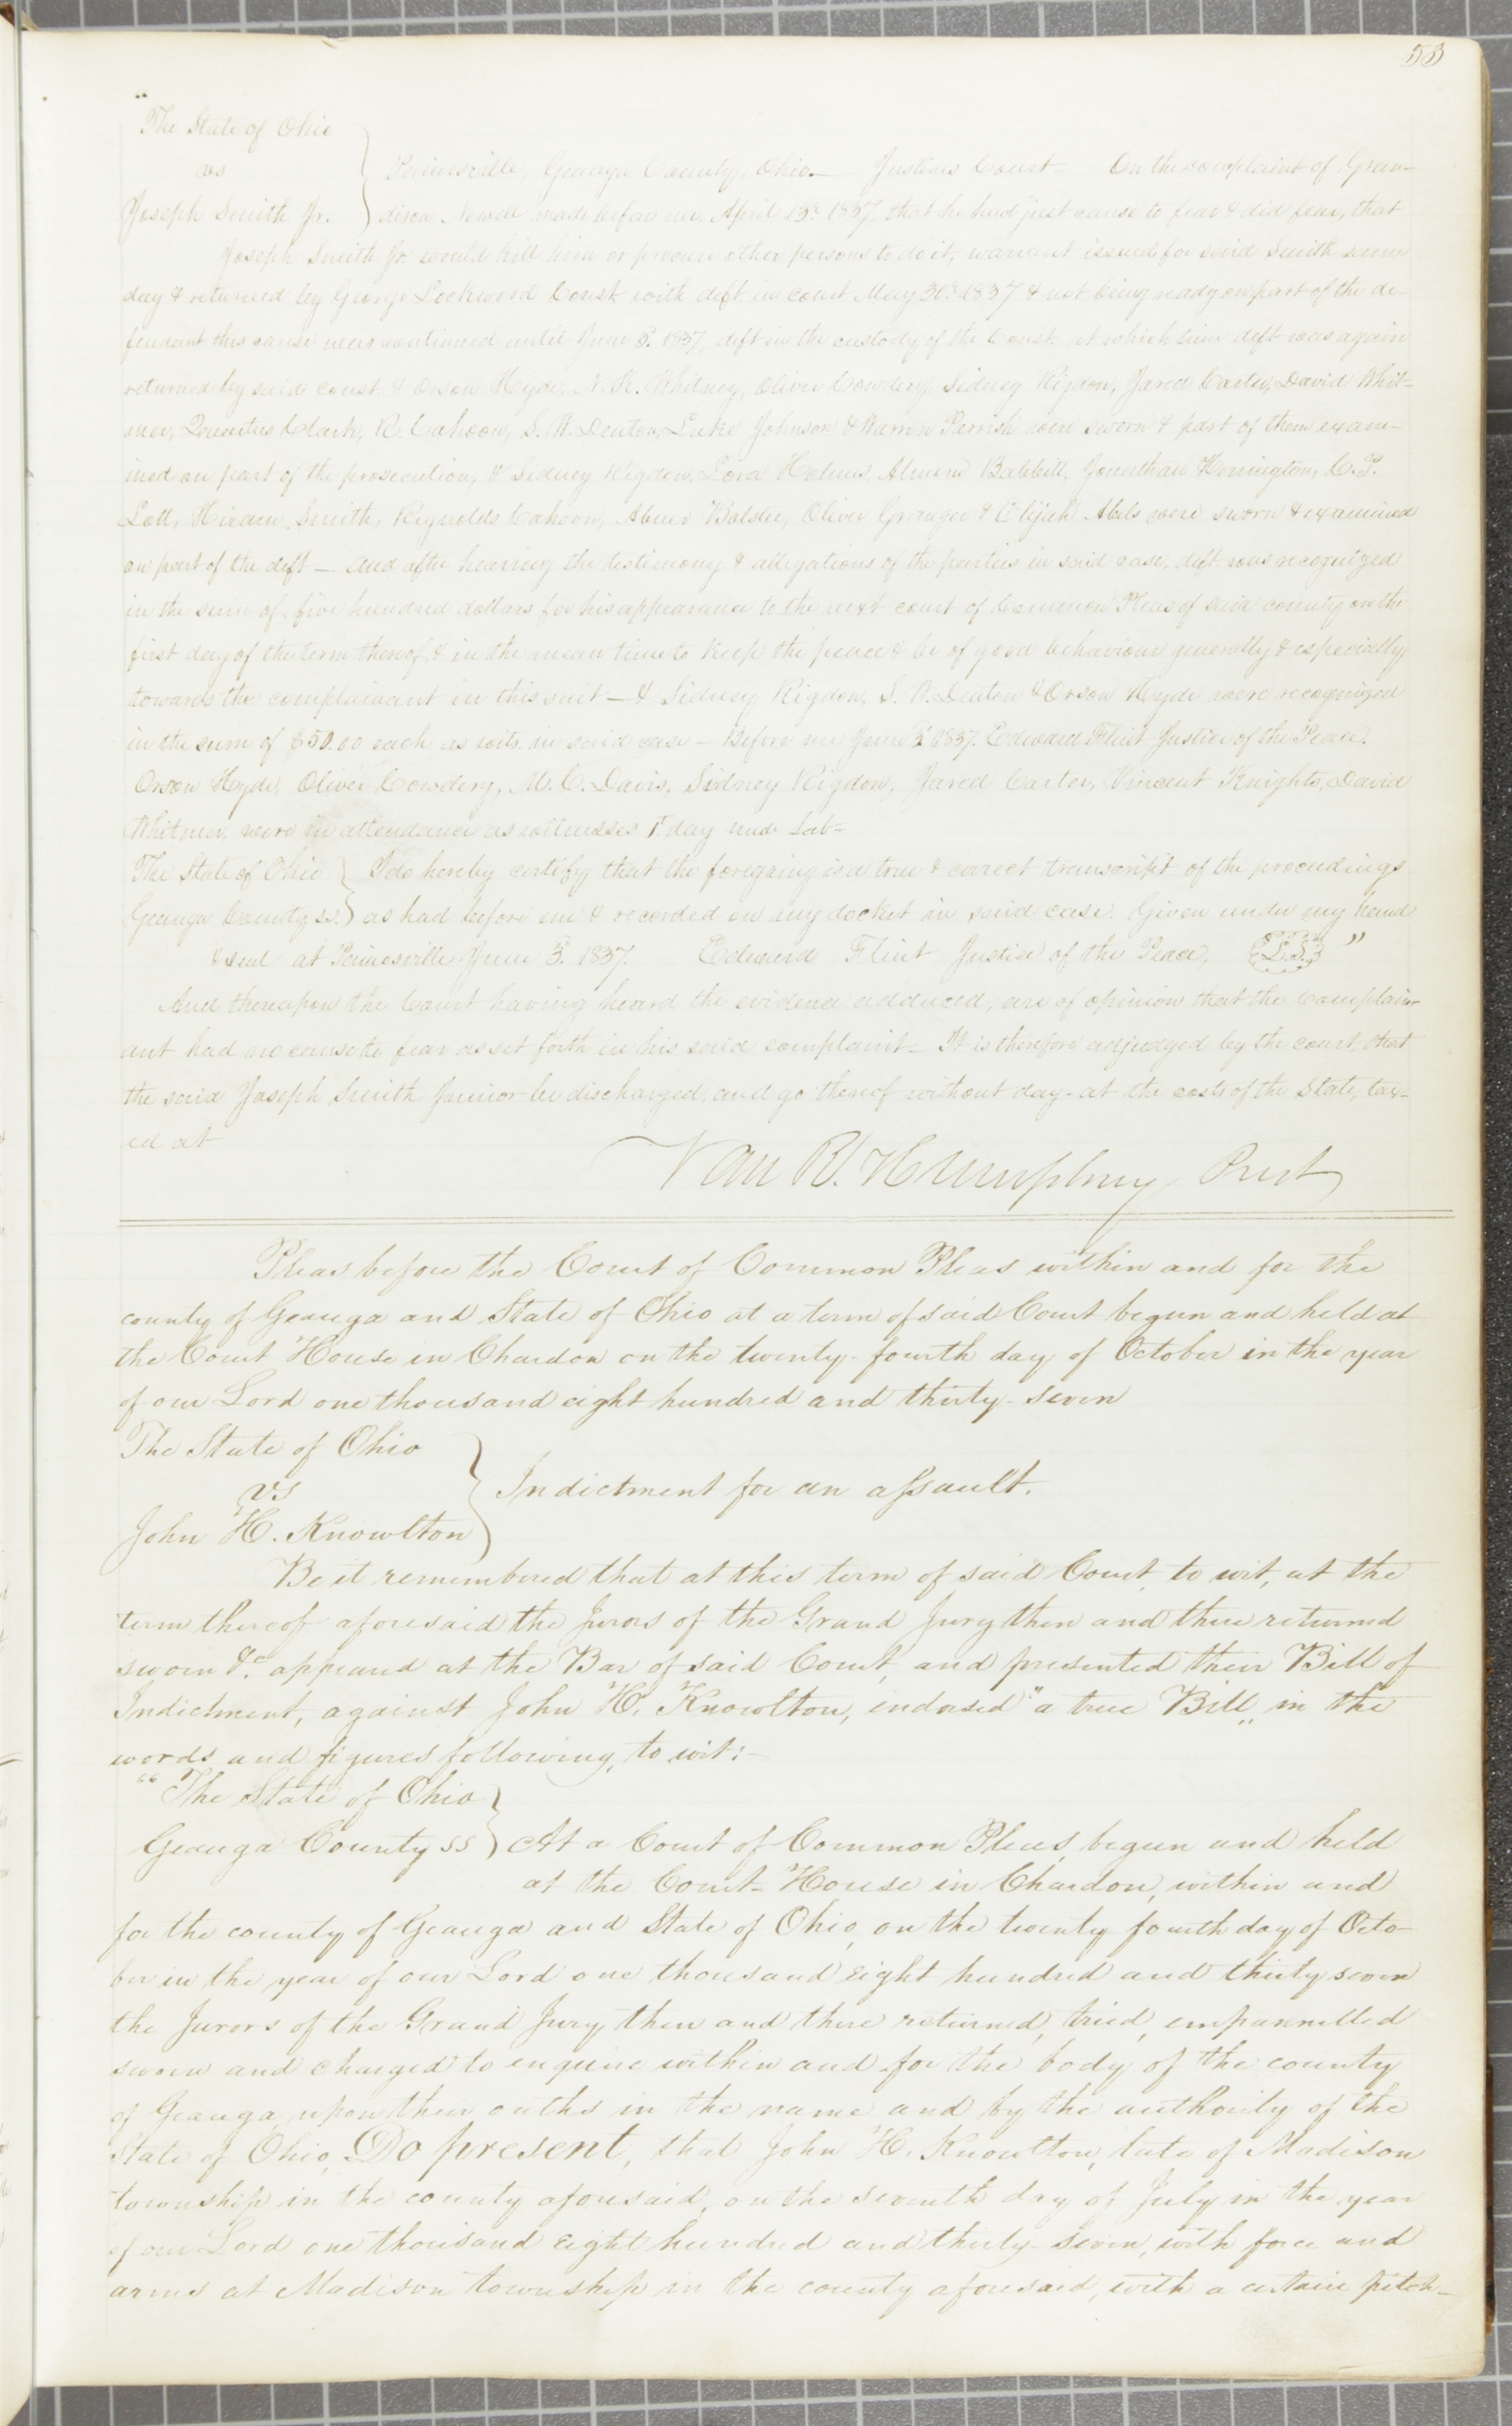 53
"The State of Ohio
vs
Joseph Smith Jr.
Painesville, Geauga County, Ohio— Justices Court— On the complaint of Gran-
dison Newell made before me April 13th 1837, that he had just cause to fear & did fear, that
Joseph Smith Jr. would kill him or procure other persons to do it, warrant issued for said Smith same
day & returned by George Lockwood Const. with deft in court May 30th 1837 & not being ready on part of the de-
fendant this cause was continued until June 3d. 1837, deft in the custody of the Const. at which time deft was again
returned by said const. & Orson Hyde, N. K. Whitney, Oliver Cowdery, Sidney Rigdon, Jared Carter, David Whit-
mer, Clark, R. Cahoon, S. W. Denton, Luke Johnson & Warren Parrish were sworn & part of them exam-
ined on part of the prosecution, & Sidney Rigdon, Holmes, Babbitt, Jonathan Herrington, C. P.
Lott, Hiram Smith, Reynolds Cahoon, Abner Oliver Granger & Elijah Abels were sworn & examined
on part of the deft— and after hearing the testimony & allegations of the parties in said case, deft was recognized
in the sum of five hundred dollars for his appearance to the next court of Common Pleas of said county on the
first day of the term thereof, & in the mean time to keep the peace & be of good behaviour generally & especially
towards the complainant in this suit— & Sidney Rigdon, S. W. Denton & Orson Hyde were recognized
in the sum of $50.00 each as wits. in said case— Before me June 3d 1837. Edward Flint Justice of the Peace.
Orson Hyde, Oliver Cowdery, M. C. Davis, Sidney Rigdon, Jared Carter, Vincent Knights, David
Whitmer, were in attendance as witnesses 1st day
The State of Ohio
Geauga County ss.
I do hereby certify that the foregoing is a true & correct transcript of the proceedings
as had before me & recorded on my docket in said case. Given under my hand
& seal at Painesville June 3d. 1837. Edward Flint Justice of the Peace, L.S. "
And thereupon the Court having heard the evidence adduced, are of opinion that the complain-
ant had no cause to fear as set forth in his said complaint— It is therefore adjudged by the court, that
the said Joseph Smith Junior be discharged, and go thereof without day— at the costs of the State, tax-
ed at
Van R. Humphrey Prest
Pleas before the Court of Common Pleas within and for the
county of Geauga and State of Ohio at a term of said Court begun and held at
the Court House in Chardon on the twenty-fourth day of October in the year
of our Lord one thousand eight hundred and thirty-seven
The State of Ohio
vs
John H. Knowlton
Indictment for an assault.
Be it remembered that at this term of said Court, to wit, at the
term thereof aforesaid the Jurors of the Grand Jury then and there returned
sworn &c. appeared at the Bar of said Court, and presented their Bill of
Indictment, against John H. Knowlton, endorsed "a true Bill" in the
words and figures following, to wit:—
"The State of Ohio
Geauga County ss
At a Court of Common Pleas, begun and held
at the Court-House in Chardon, within and
for the county of Geauga and State of Ohio, on the twenty fourth day of Octo-
ber in the year of our Lord one thousand eight hundred and thirty seven
the Jurors of the Grand Jury then and there returned, tried, empannelled
sworn and charged to enquire within and for the body of the county
of Geauga, upon their oaths in the name and by the authority of the
State of Ohio, Do present, that John H. Knowlton, late of Madison
township in the county aforesaid, on the seventh day of July in the year
of our Lord one thousand eight hundred and thirty-seven, with force and
arms at Madison township in the county aforesaid, with a certain pitch-